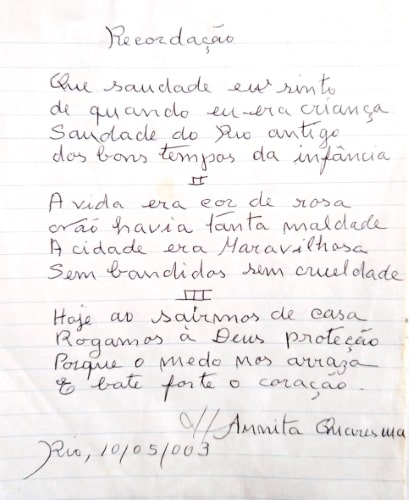 Recordação
Que saudade eu sinto
de quando eu era criança
Saudade do Rio antigo
dos bons tempos da infância
II
A vida era cor de rosa
não havia tanta maldade
A cidade era Maravilhosa
Sem bandidos sem crueldade
III
Hoje ao sairmos de casa
Rogamos à Deus proteção
Porque o medo nos arraza
E bate forte o coração.
Annita Quaresma
Rio, 10/05/003